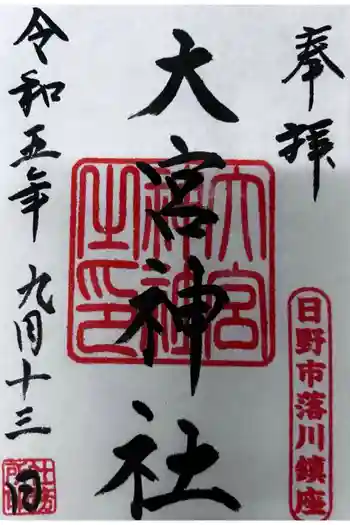 奉拝
日野市落川鎮座
大宮神社
大宮神社之印
令和五年九月十三日